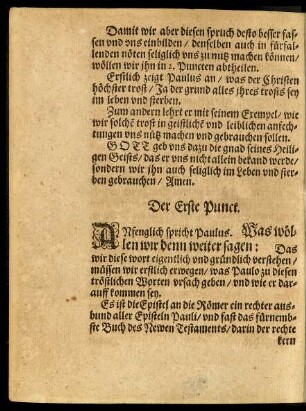 Damit wir aber diesen spruch desto besser fas-
sen vnd vns einbilden / denselben auch in fürfal-
lenden nöten seliglich vns zu nutz machen können /
wöllen wir jhn in 2. Puncten abtheilen.
Erstlich zeigt Paulus an / was der Christen
höchster trost / Ja der grund alles jhres trosts sey
im leben vnd sterben.
Zum andern lehrt er mit seinem Exempel / wie
wir solchē trost in geistlichē vnd leiblichen anfech-
tungen vns nütz machen vnd gebrauchen sollen.
GOTT geb vns dazu die gnad seines Heili-
gen Geists / das er vns nicht allein bekand werde /
sondern wir jhn auch seliglich im Leben vnd ster-
ben gebrauchen / Amen.
Der Erste Punct.
ANfenglich spricht Paulus. Was wöl-
len wir denn weiter sagen: Das
wir diese wort eigentlich vnd gründlich verstehen /
müssen wir erstlich erwegen / was Paulo zu diesen
tröstlichen Worten vrsach geben / vnd wie er dar-
auff kommen sey.
Es ist die Epistel an die Römer ein rechter aus-
bund aller Episteln Pauli / vnd fast das fürnemb-
ste Buch des Newen Testaments / darin der rechte
kern